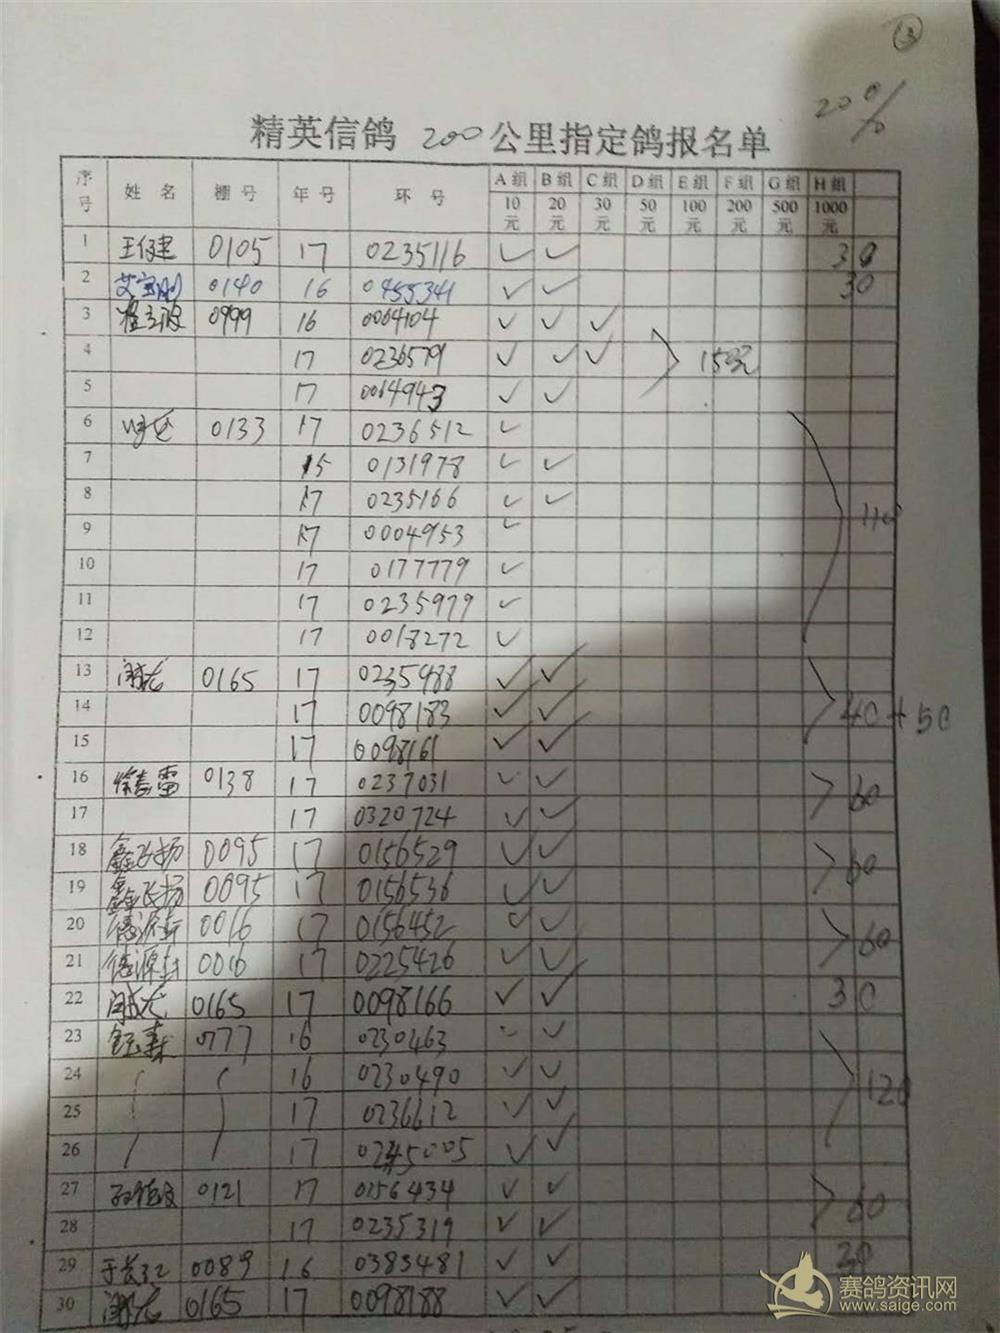 13
20%
精英信鸽 200 公里指定鸽报名单
序号 姓 名 棚 号 年 号 环 号 A 组 B 组 C 组 D 组 E 组 F 组 G 组 H 组
10元 20元 30元 50元 100元 200元 500元 1000元
1 0105 17 0235116 ✓ ✓ 30
2 艾宝刚 0140 16 0455341 ✓ ✓ 30
3 0999 16 0064104 ✓ ✓ ✓
4 17 0236579 ✓ ✓ ✓ 150元
5 17 0064943 ✓ ✓
6 0133 17 0236512 ✓
7 15 0131978 ✓ ✓
8 17 0235166 ✓ ✓
9 17 0004953 ✓ 110
10 17 0177779 ✓
11 17 0235979 ✓
12 17 0018272 ✓
13 0165 17 0235988 ✓ ✓
14 17 0098183 ✓ ✓ 40+50
15 17 0098161 ✓ ✓
16 0138 17 0237031 ✓ ✓ 60
17 17 0320724 ✓ ✓
18 鑫飞扬 0095 17 0156529 ✓ ✓ 60
19 鑫飞扬 0095 17 0156536 ✓ ✓
20 德源轩 0016 17 0156452 ✓ ✓ 60
21 德源轩 0016 17 0225426 ✓ ✓
22 0165 17 0098166 ✓ ✓ 30
23 0777 16 0230463 ✓ ✓
24 16 0230490 ✓ ✓ 120
25 17 0236612 ✓ ✓
26 17 0245005 ✓ ✓
27 0121 17 0156434 ✓ ✓ 60
28 17 0235319 ✓ ✓
29 0089 16 0383481 ✓ ✓ 30
30 0165 17 0098188 ✓ ✓
赛鸽资讯网
www.saige.com